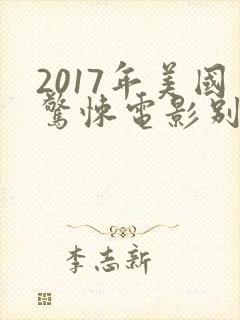 2017年美國
驚悚電影别
李志新